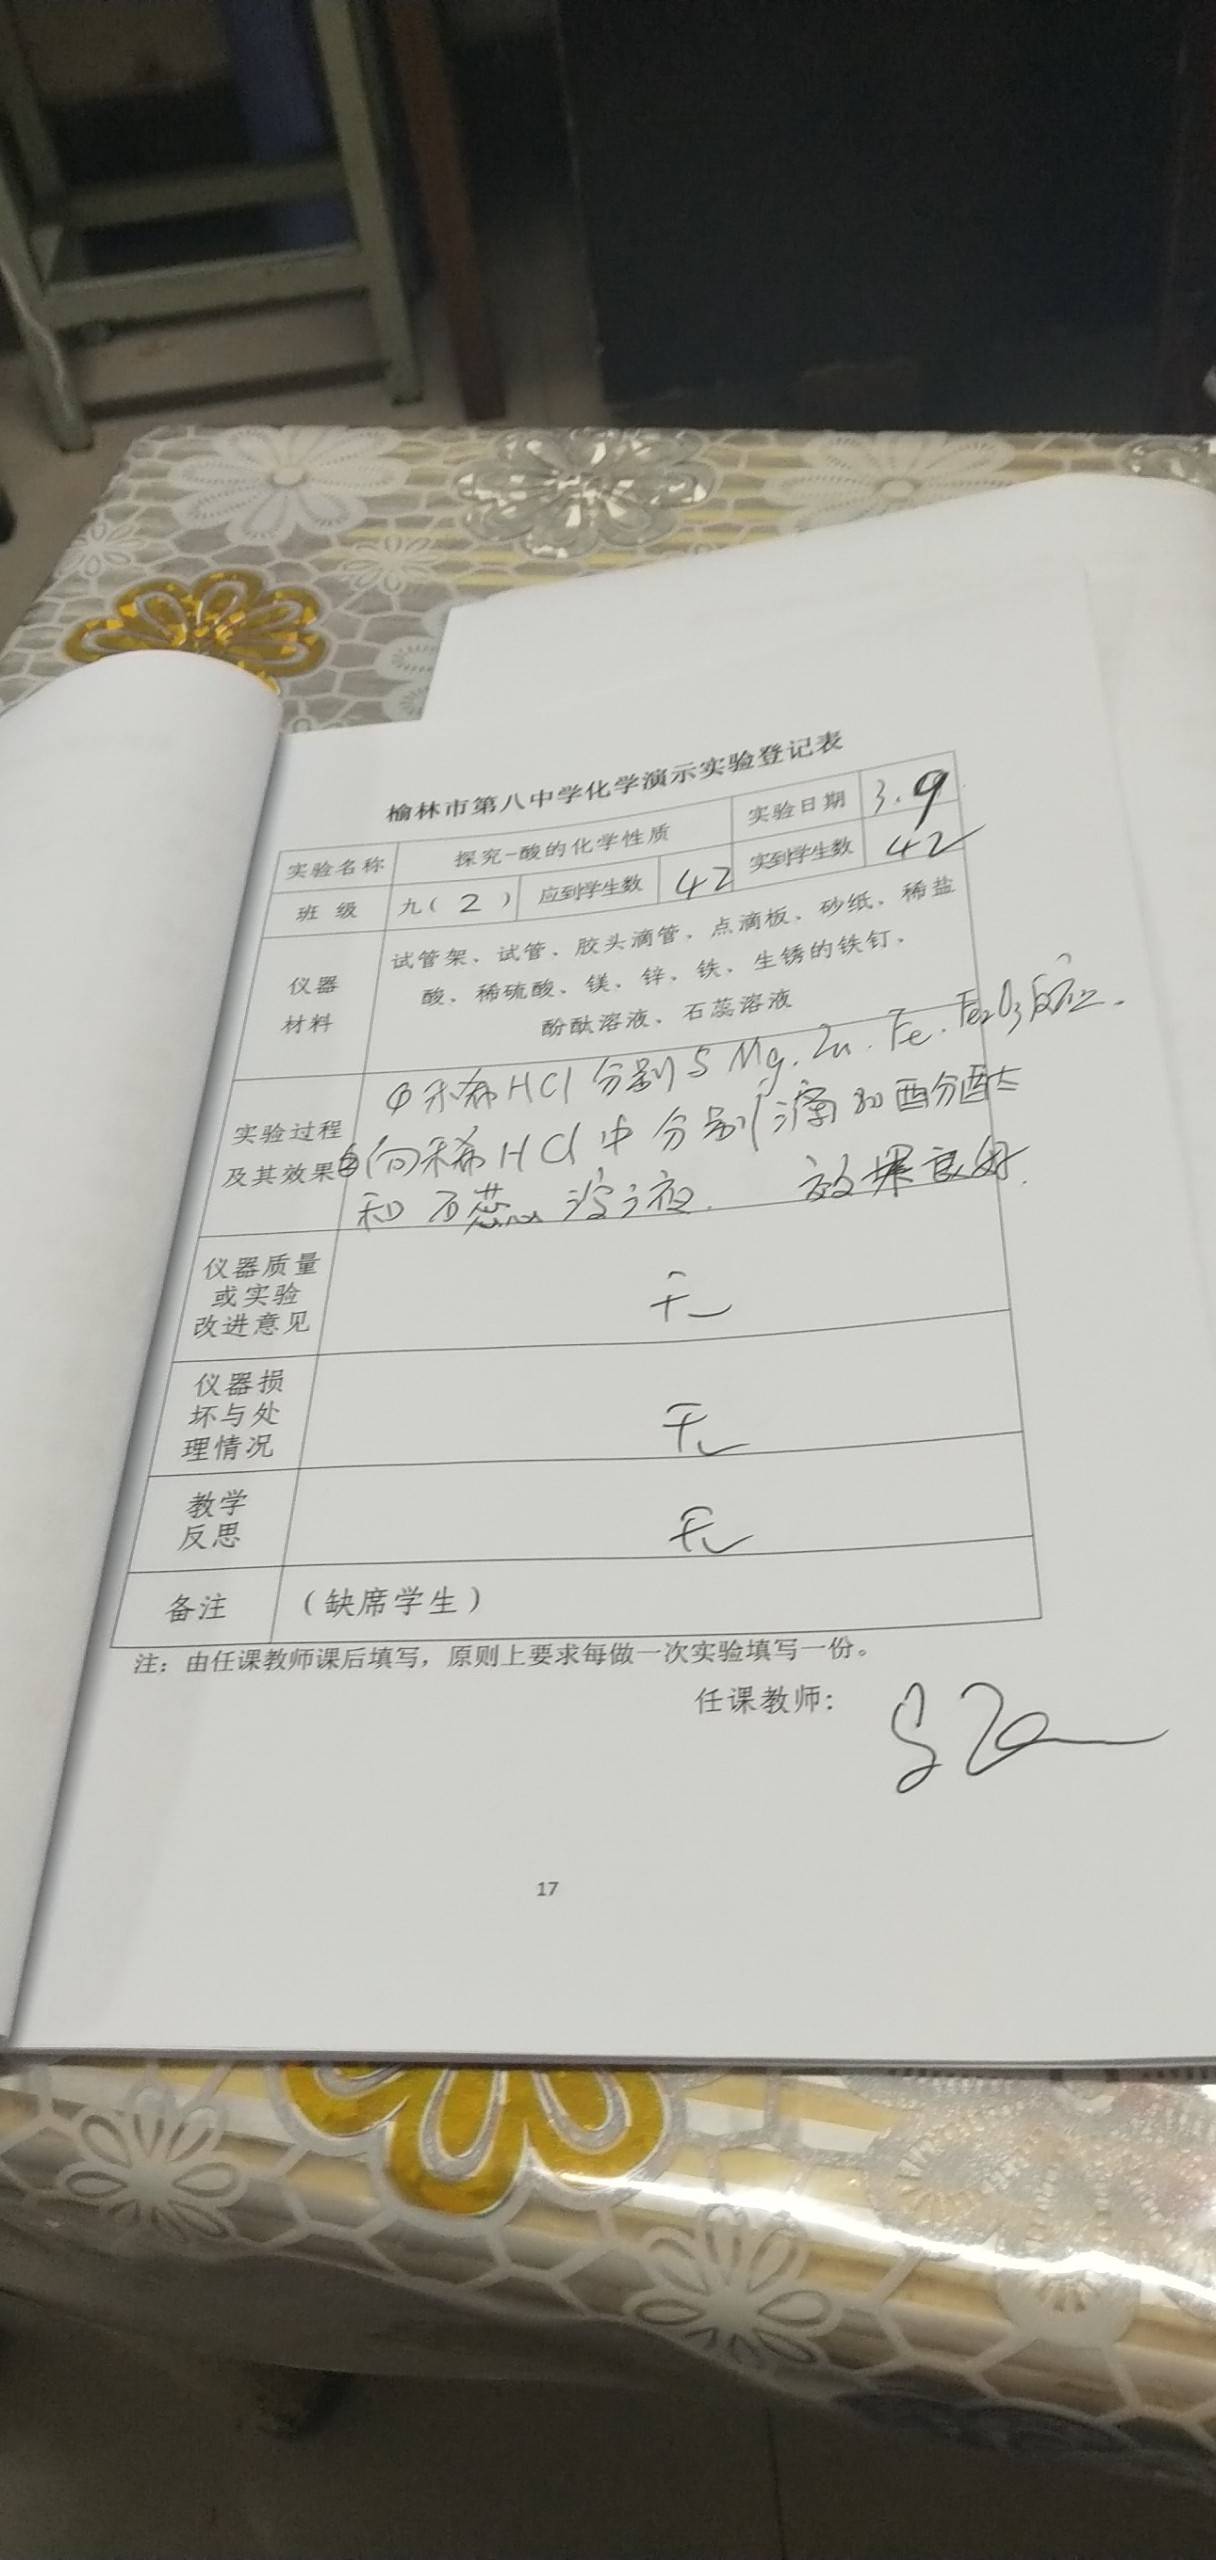 榆林市第八中学化学演示实验登记表
实验名称 探究-酸的化学性质 实验日期 3.9
班 级 九( 2 ) 应到学生数 42 实到学生数 42
仪器
材料
试管架、试管、胶头滴管、点滴板、砂纸、稀盐
酸、稀硫酸、镁、锌、铁、生锈的铁钉、
酚酞溶液、石蕊溶液
实验过程
及其效果
①稀HCl分别与Mg.Zn.Fe.Fe2O3反应.
②向稀HCl中分别滴加酚酞
和石蕊溶液. 效果良好.
仪器质量
或实验
改进意见
无
仪器损
坏与处
理情况
无
教学
反思
无
备注 (缺席学生)
注：由任课教师课后填写，原则上要求每做一次实验填写一份。
任课教师：
17